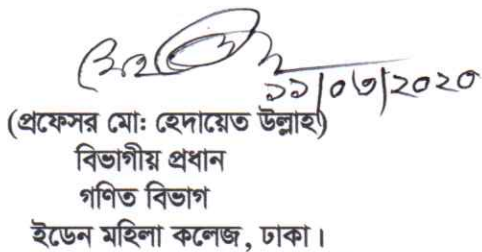 ১১/০৩/২০২০
(প্রফেসর মো: হেদায়েত উল্লাহ)
বিভাগীয় প্রধান
গণিত বিভাগ
ইডেন মহিলা কলেজ, ঢাকা।